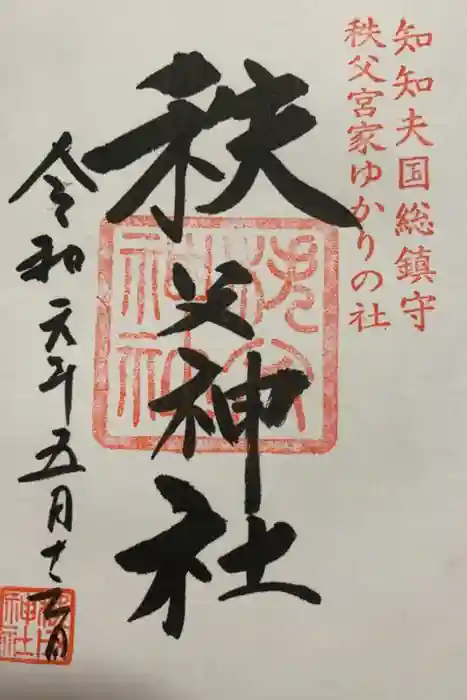 知知夫国総鎮守
秩父宮家ゆかりの社
秩父神社
令和元年五月十二日
秩父神社